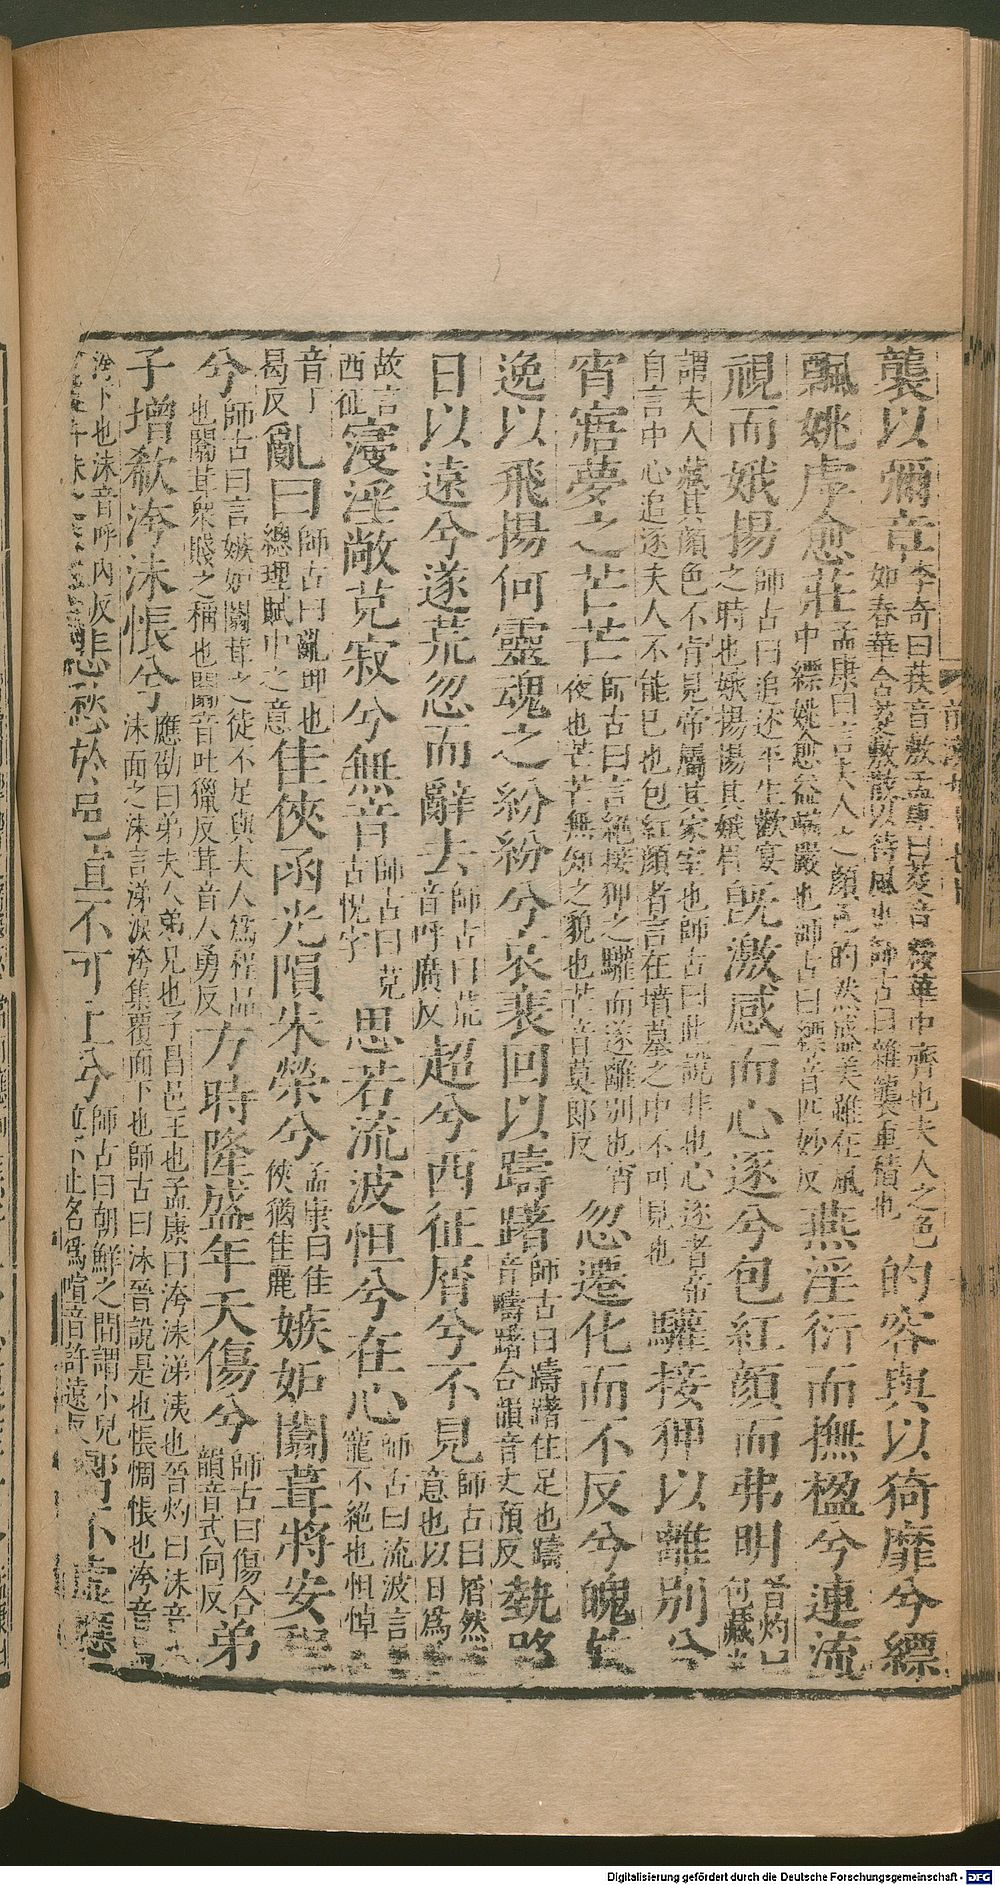 襲以彌章李奇曰荴音敷孟康曰荾音綏華中齊也夫人之色如春華含荾敷散以待風也師古曰雜襲重積也的容與以猗靡兮縹
飄姚虖愈莊孟康曰言夫人之顏色的然盛美雖在風中縹姚愈益端嚴也師古曰縹音匹妙反燕淫衍而撫楹兮連流
視而娥揚師古曰追述平生歡宴之時也娥揚揚其娥眉既激感而心逐兮包紅顏而弗明晉灼曰何藏
謂夫人藏其顏色不肯見帝屬其家室也師古曰此說非也心逐者帝自言中心追逐夫人不能已也包紅顏者言在墳墓之中不可見也驩接狎以離別兮
宵寤夢之芒芒師古曰言絕接狎之驩而遂離別也宵夜也芒芒無知之貌也芒音莫郎反忽遷化而不反兮魄放
逸以飛揚何靈魂之紛紛兮哀裴回以躊躇師古曰躊躇住足也躊音疇躇合韻音丈預反埶路
日以遠兮遂荒忽而辭去師古曰荒音呼廣反超兮西征屑兮不見師古曰屑然意也以日為
故言西征寖淫敞克寂兮無音師古曰克古怳字思若流波怛兮在心師古曰流波言寵不絕也怛悼
音丁曷反亂曰師古曰亂理也總理賦中之意佳俠函光隕朱榮兮孟康曰佳俠猶佳麗嫉妒闟茸將安程
兮師古曰言嫉妒闟茸之徒不足與夫人為程品也闟茸眾賤之稱也闟音吐獵反茸音人勇反方時隆盛年夭傷兮師古曰傷合韻音式向反弟
子增欷洿沬悵兮應劭曰弟夫人弟兄也子昌邑王也孟康曰洿沬涕洟也晉灼曰沬音沬面之沬言涕淚洿集覆面下也師古曰沬晉說是也悵惆悵也洿音
下也沬音呼內反悲愁於邑喧不可止兮師古曰朝鮮之間謂小兒泣不止名為喧音許遠反嚮不虛應
Digitalisierung gefördert durch die Deutsche Forschungsgemeinschaft - DFG